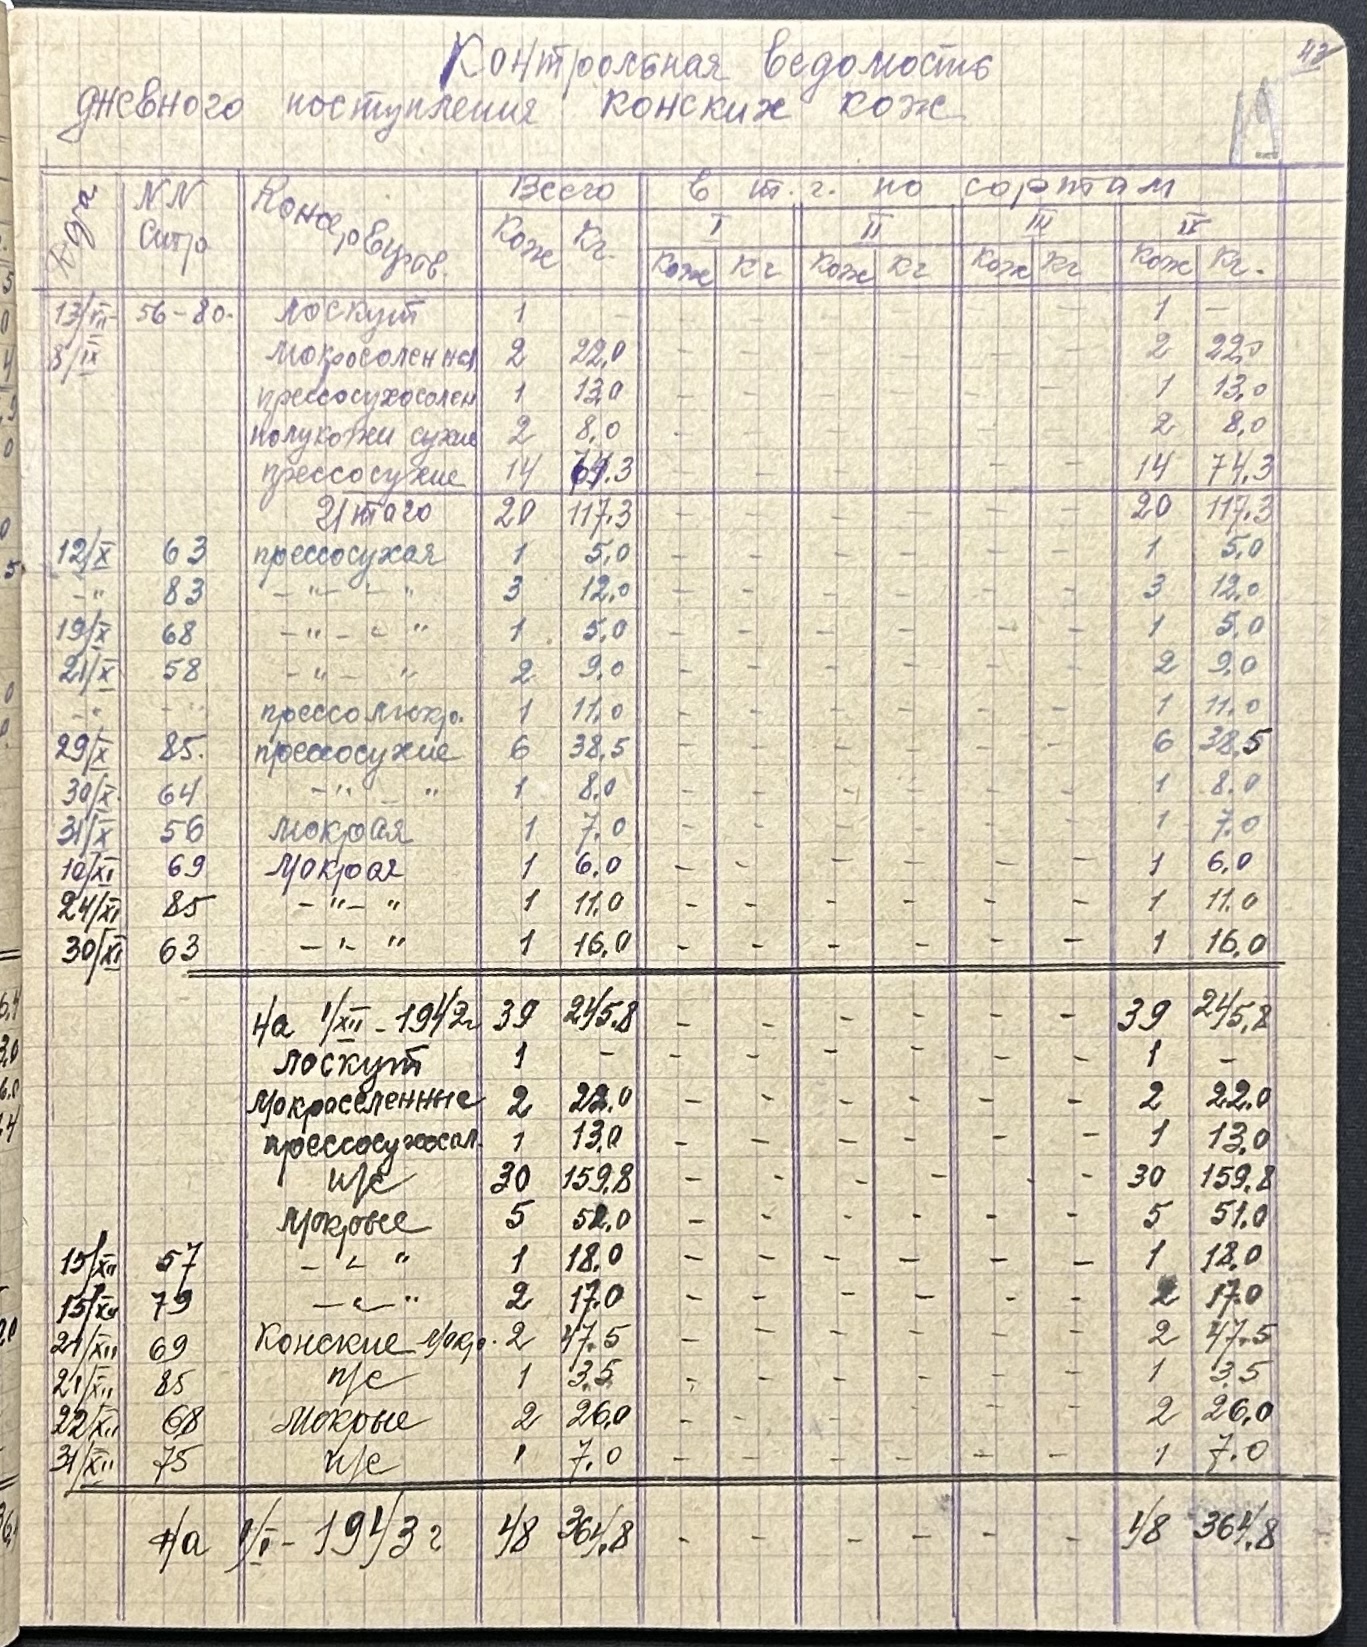 Контрольная ведомость
дневного поступления конских кож
NN Всего в т.г. по сортам
Консервиров. Кож Кг. I II III IV
Кож Кг Кож Кг Кож Кг Кож Кг.
13/VII 56-80. Лоскут 1 1 –
8/IX Мокросоленная 2 22,0 – – – – – – 2 22,0
прессосухосолен 1 13,0 – – – – – – 1 13,0
полукожи сухие 2 8,0 – – – – – – 2 8,0
прессосухие 14 – – – – – – 14 74,3
Итого 20 117,3 – – – – – – 20 117,3
12/X 63 прессосухая 1 5,0 – – – – – – 1 5,0
–"– 83 –"– –"– 3 12,0 – – – – – – 3 12,0
19/X 68 –"– –"– 1 5,0 – – – – – – 1 5,0
21/X 58 –"– –"– 2 9,0 – – – – – – 2 9,0
–"– –"– прессомокр. 1 11,0 – – – – – – 1 11,0
29/X 85. прессосухие 6 38,5 – – – – – – 6 38,5
30/X 64 –"– –"– 1 8,0 – – – – – – 1 8,0
31/X 56 Мокрая 1 7,0 – – – – – – 1 7,0
10/XI 69 Мокрая 1 6,0 – – – – – – 1 6,0
24/XI 85 –"–"– 1 11,0 – – – – – – 1 11,0
30/XI 63 –"–"– 1 16,0 – – – – – – 1 16,0
На 1/XII – 1942г 39 245,8 – – – – – – 39 245,8
Лоскут 1 – – – – – – – 1 –
Мокросоленные 2 22,0 – – – – – – 2 22,0
прессосухосол. 1 13,0 – – – – – – 1 13,0
п/с 30 159,8 – – – – – – 30 159,8
Мокрые 5 – – – – – – 5 51,0
15/XII 57 –"–"– 1 18,0 – – – – – – 1 18,0
15/XII 79 –"–"– 2 17,0 – – – – – – 2 17,0
21/XII 69 Конские мокр. 2 47,5 – – – – – – 2 47,5
21/XII 85 п/с 1 3,5 – – – – – – 1 3,5
22/XII 68 Мокрые 2 26,0 – – – – – – 2 26,0
31/XII 75 п/с 1 7,0 – – – – – – 1 7,0
На 1/I – 1943г 48 364,8 – – – – – – 48 364,8